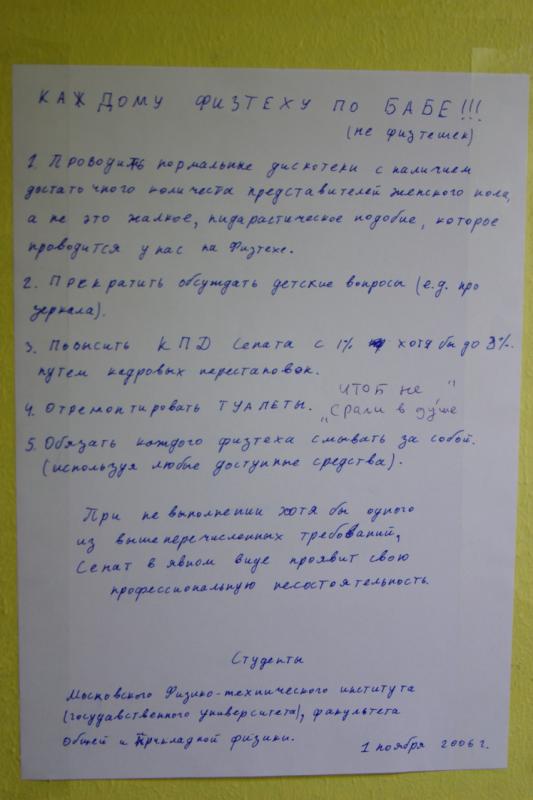 КАЖДОМУ ФИЗТЕХУ ПО БАБЕ!!!
(не физтешек)
1. Проводить нормальные дискотеки с наличием
достаточного количеста представителей женского пола,
а не это жалкое, пидарастическое подобие, которое
проводится у нас на Физтехе.
2. Прекратить обсуждать детские вопросы (e.g. про
зеркала).
3. Повысить КПД Сената с 1% хотя бы до 3%.
путем кадровых перестановок.
4. Отремонтировать ТУАЛЕТЫ. чтоб не "
„Срали в душе
5. Обязать каждого физтеха смывать за собой.
(используя любые доступные средства).
При не выполнении хотя бы одного
из вышеперечисленных требований,
Сенат в явном виде проявит свою
профессиональную несостоятельность.
Студенты
Московского Физико-технического института
(государственного университета), факультета
Общей и прикладной физики.
1 ноября 2006 г.